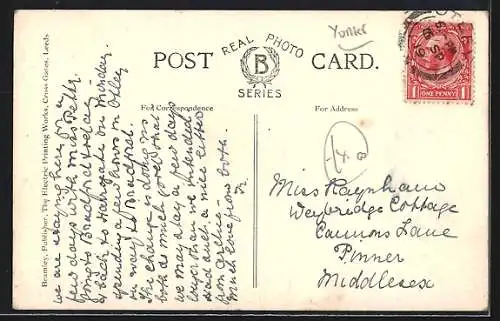 Yorks
POST CARD.
REAL PHOTO
B
SERIES
For Correspondence
For Address
Bramley, Publisher, The Electric Printing Works, Cross Gates, Leeds.
ONE PENNY
1 1
We are staying here for a
few days with Miss
going to Bradford today
& back to Harrogate on Monday.
spending a few hours on Otley
on way to Bradford.
The change is doing us
both so much good that
we may stay a few days
longer than we intended.
Had such a nice letter
from
Much love from both.
Miss Raynham
Weybridge Cottage
Cannons Lane
Pinner
Middlesex